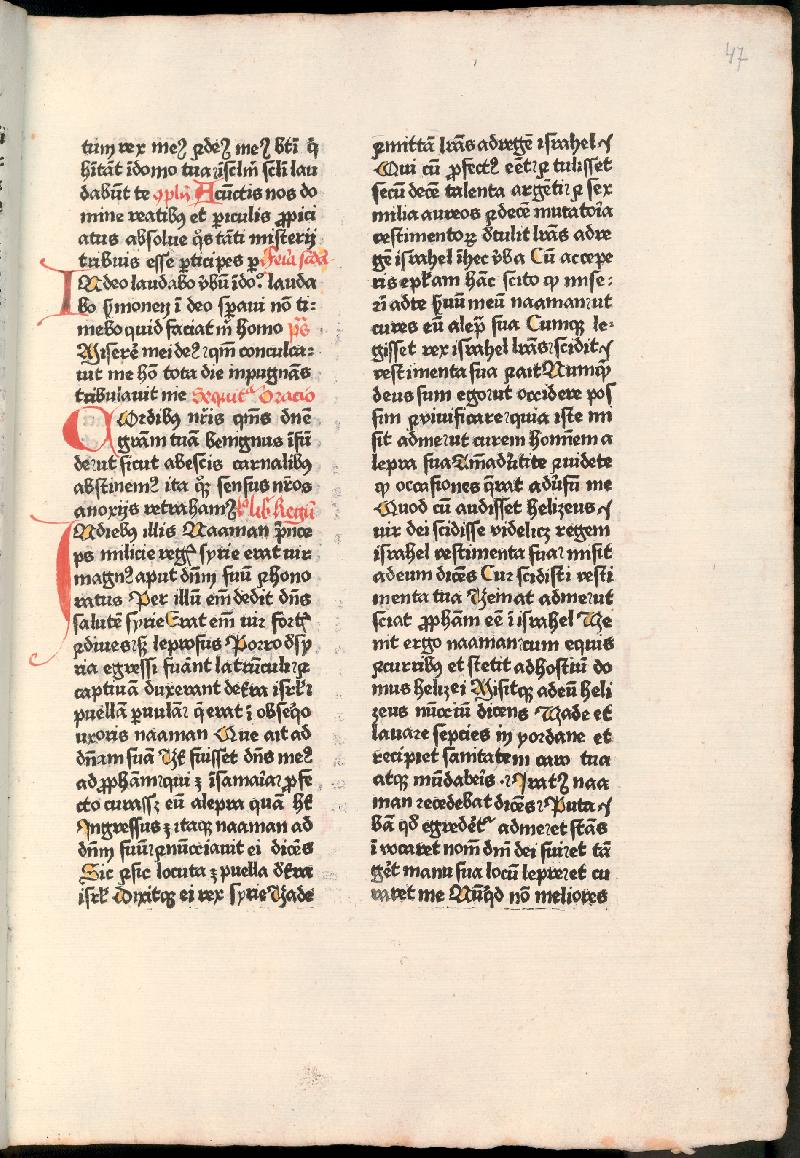 47
tum rex meꝰ ⁊ deꝰ meꝰ bt̄i q̄
hītāt ī domo tua ī sclm̄ scl̄i lau
dabūt te ꝯplēn A cūctis nos do
mine reatibꝰ et ꝑiculis ꝓpici
atus absolue q̄s tāti misterij
tribuis esse ꝑticipes ꝑ Feria scd̄a
IN deo laudabo v̄bū ī do°: lauda
bo ẜmonen ī deo sꝑaui nō ti:
mebo quid faciat m̄ homo ps̄
Miserē mei deꝰ qm̄ conculca:
uit me hō tota die inpugnās
tribulauit me Sequit᷑ Oracio
COrdibꝰ nr̄is qms̄ dnē
grām tuā benignus īfū
de ut sicut ab escis carnalibꝰ
abstinemꝰ ita qꝫ sensus nr̄os
a noxijs retrahamꝰ lib̄ Regū
IN diebꝰ illis Naaman p̄nce
ps milicie reḡ syrie erat uir
magnꝰ aput dn̄m suū ⁊ hono
ratus Per illū em̄ dedit dn̄s
salutē syrie Erat em̄ uir fort̄
⁊ diues sꝫ leprosus Porro d̄ sy
ria egressi fuānt latrūculi ⁊
captiuā duxerant de t̄ra isrl̄
puellā ꝑuulā q̄ erat ī obseq̄o
uxoris naaman Que ait ad
dn̄am suā Vt̄ fuisset dn̄s meꝰ
ad ꝓphām qui ē ī samaīa ꝓfe
cto curassꝫ eū a lepra quā hꝫ
Ingressus ē itaqꝫ naaman ad
dn̄m suū ⁊ nūcciauit ei dicēs
Sic ⁊ sic locuta ē puella d̄ t̄ra
isrl̄ Dixitqꝫ ei rex syrie Vade
⁊ mittā lrās ad regē israhel
Qui cū ꝓfectꝰ eēt ⁊ tulisset
secū decē talenta argēti ⁊ sex
milia aureos ⁊ decē mutatoīa
vestimentoꝝ d̄tulit lrās ad re
gē israhel ī hec v̄ba Cū accepe
ris epl̄am hāc scito ꝙ mise:
rī ad te ẜuū meū naaman ut
cures eū a lep̄ sua Cumqꝫ le:
gisset rex israhel lrās scidit
vestimenta sua ⁊ ait Numqͥd
deus sum ego ut occidere pos
sim ⁊ viuificare quia iste mi
sit ad me ut curem hoīnem a
lepra sua Am̄aduītite ⁊ uidete
ꝙ occasiones q̄rat adūsū me
Quod cū audisset helizeus
uir dei scidisse videlicꝫ regem
israhel vestimenta sua misit
ad eum dicēs Cur scidisti vesti
menta tua Veniat ad me ut
sciat ꝓphām eē ī israhel Ve
nit ergo naaman cum equis
⁊ curribꝰ et stetit ad hostiū do
mus helizei Misitqꝫ ad eū heli
zeus nūcciū dicens Vade et
lauare septies in yordane et
recipiet sanitatem caro tua
atqꝫ mūdabeīs Iratꝰ naa
man recedebat dicēs Puta
bā qd̄ egredēt᷑ ad me et stās
ī vocaret nom̄ dn̄i dei sui et tā
gēt manu sua locū lepre et cu
raret me Nūqͥd nō meliores